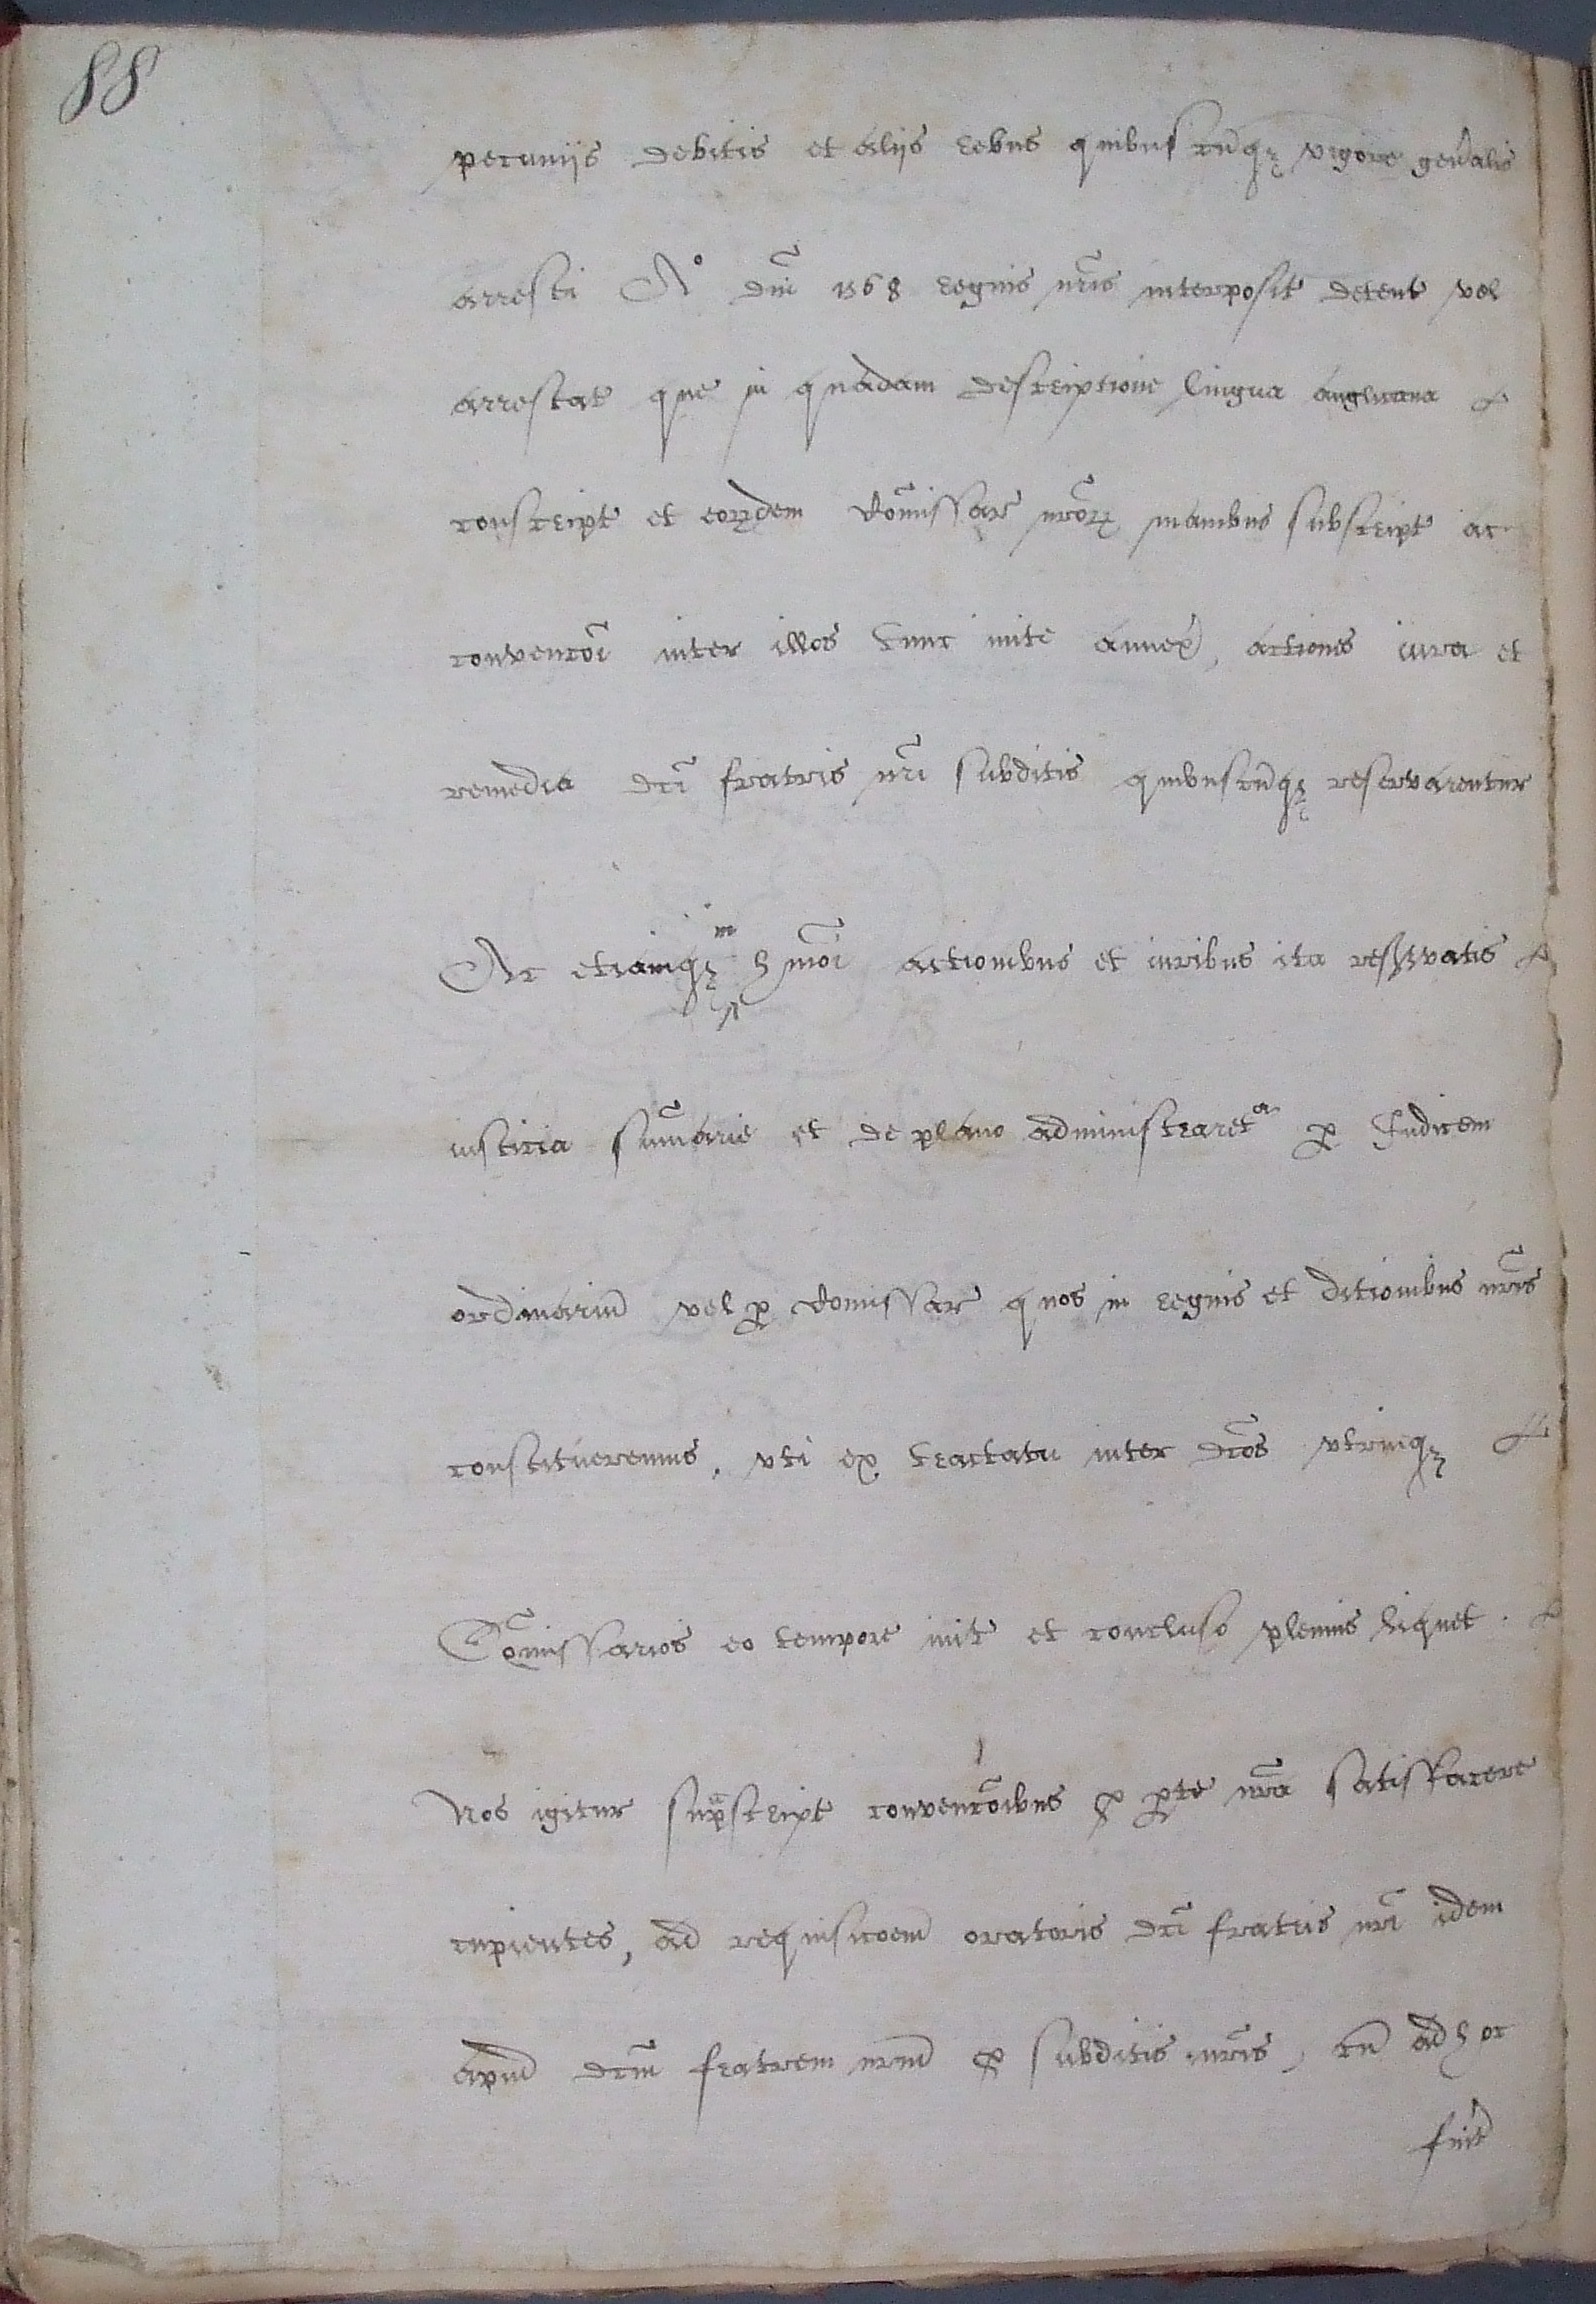 88
pecuniis debitis et aliis rebus quibuscũqꝫ vigore gen̄alis
arresti A° dñi 1568 regnis nr̃is interposit detent vel
arrestat que in quadam descriptione lingua anglicana
conscript et eorꝫdem Com̃issar nr̃orꝫ manibus subscript ac
convenc̃oi inter illos tunc inite annex, actiones iura et
remedia dc̃i fratris nr̃i subditis quibuscũqꝫ reservarentur
Ac etiamqꝫ in hmõi actionibus et iuribus ita resꝫvatis
iusticia sum̃arie et de plano administraret᷑ ꝑ Iudicem
ordinariũ vel ꝑ Comissar quos in regnis et ditionibus nr̃is
constitueremus, vti ex tractatu inter dc̃os vtrinqꝫ
Com̃issarios eo tempore init et concluso plenius liquet.
Nos igitur supᵃscript convenc̃oibus ꝓ ꝑte nr̃a satisfacere
cupientes, ad requisicoem̃ oratoris dc̃i fratris nr̃i idem
apud dc̃m fratrem nr̃um ꝓ subditis nr̃is, cũ adhoc
fũit